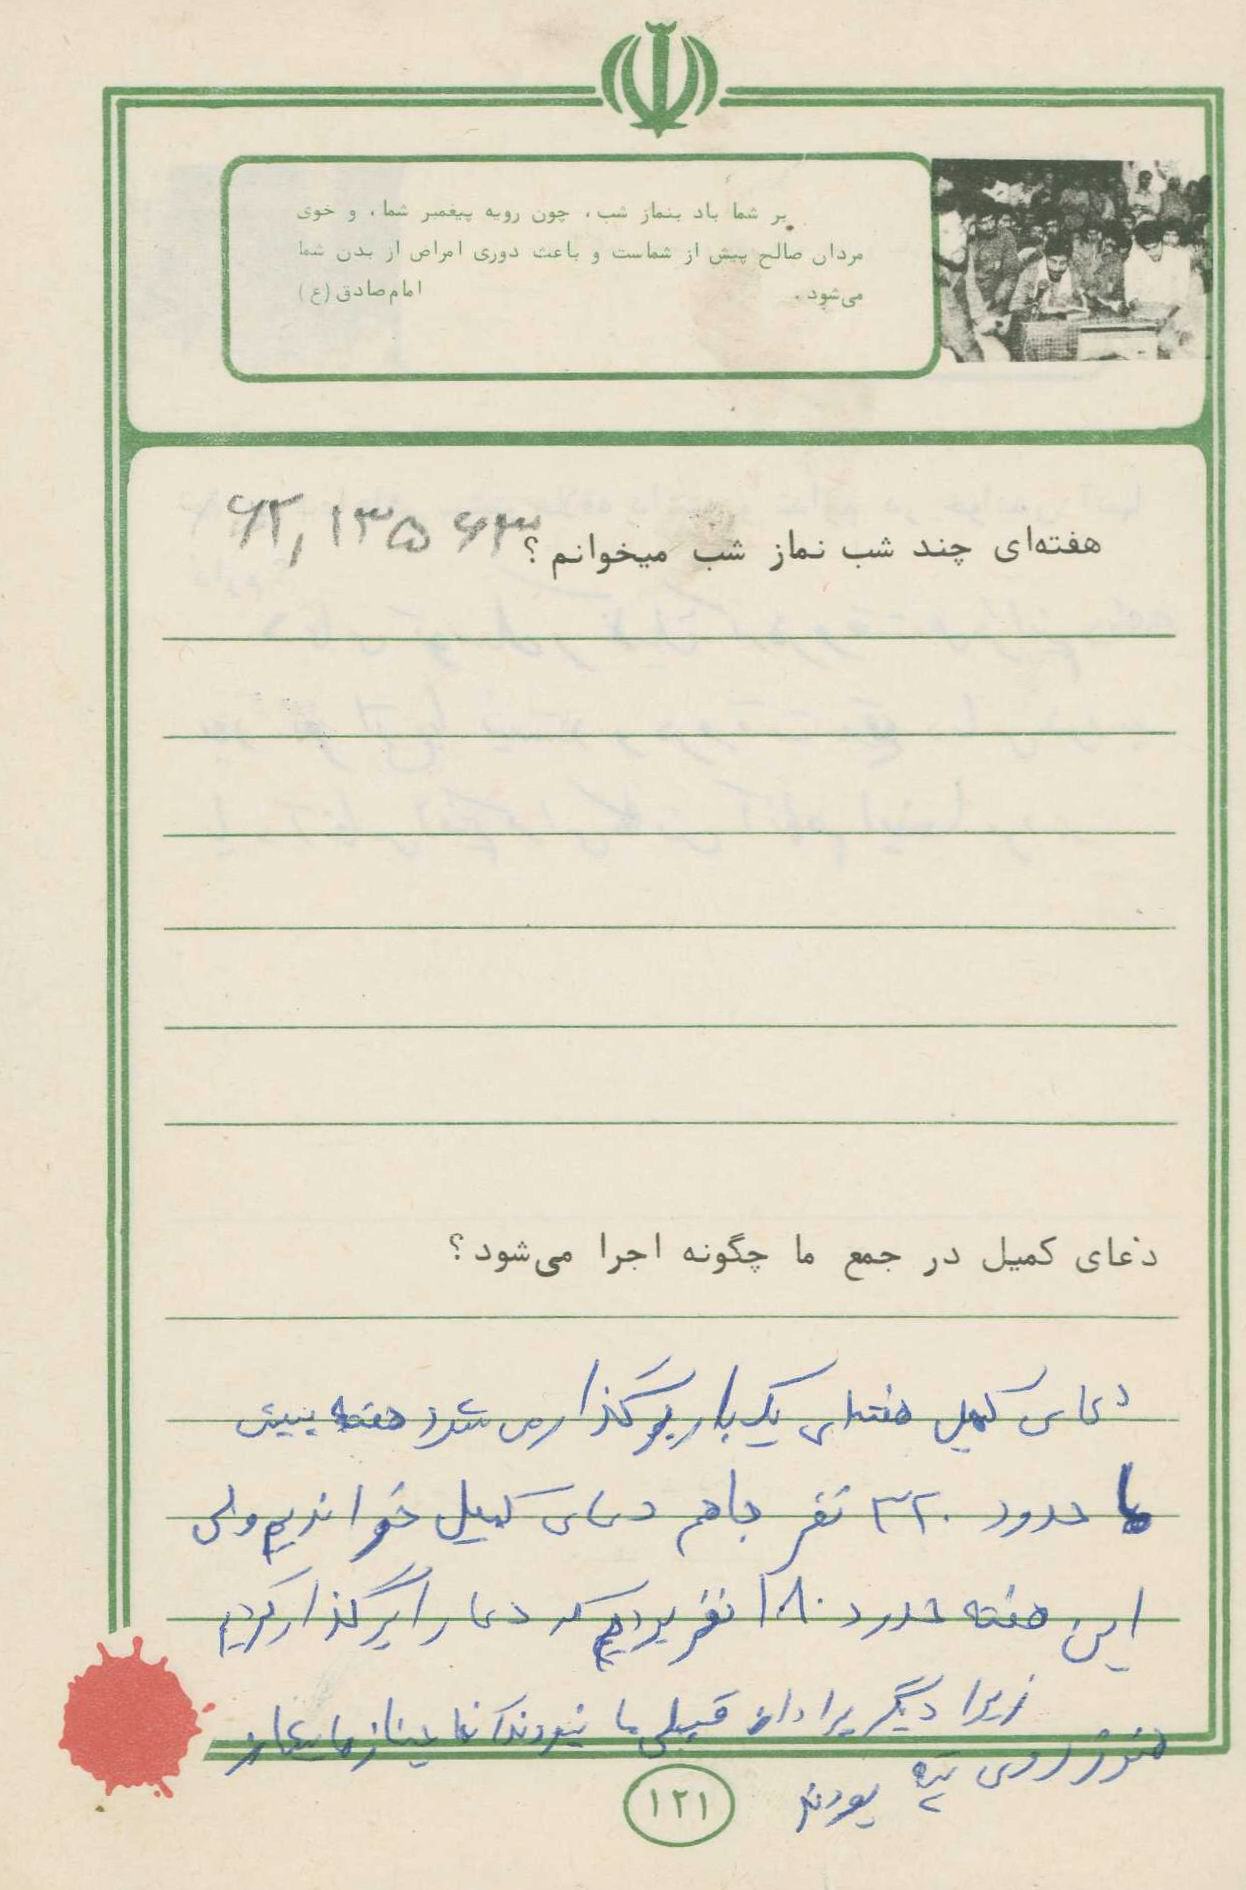 بر شما باد بنماز شب، چون رویه پیغمبر شما، و خوی
مردان صالح پیش از شماست و باعث دوری امراض از بدن شما
می‌شود. امام صادق (ع)
هفته‌ای چند شب نماز شب میخوانم؟
دعای کمیل در جمع ما چگونه اجرا می‌شود؟
دعای کمیل هفته‌ای یک بار برگذار می شود هفته پیش
ما حدود ۳۲۰ نفر باهم دعای کمیل خواندیم ولی
این هفته حدود ۱۸۰ نفر بودیم که دعا را برگذار کردیم
زیرا دیگر برادران قبلی ما نبودند آنها
هنوز روی تپه بودند
۱۲۱